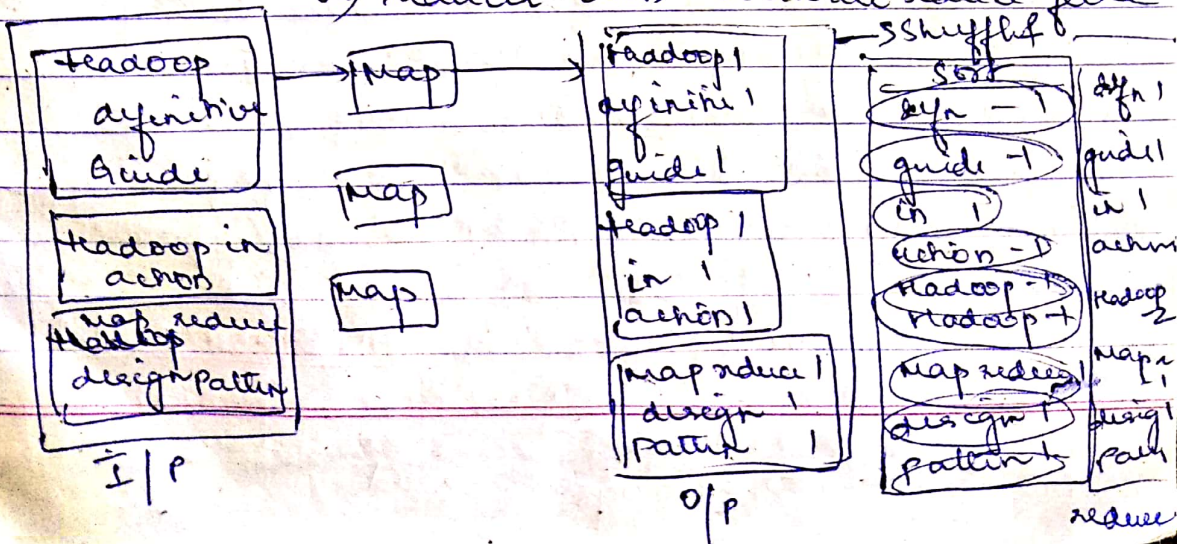 Hadoop
definitive
Guide
Hadoop in
action
map reduce
design pattern
I/P
Map
Map
Map
Hadoop 1
definiti 1
guide 1
Hadoop 1
in 1
action 1
map reduce 1
design 1
Pattern 1
O/P
Sort
defn - 1
guide - 1
in 1
action - 1
Hadoop - 1
Hadoop - 1
Map reduce 1
design 1
pattern 1
defn 1
guide 1
in 1
Hadoop
2
Map r
1
design 1
reduce